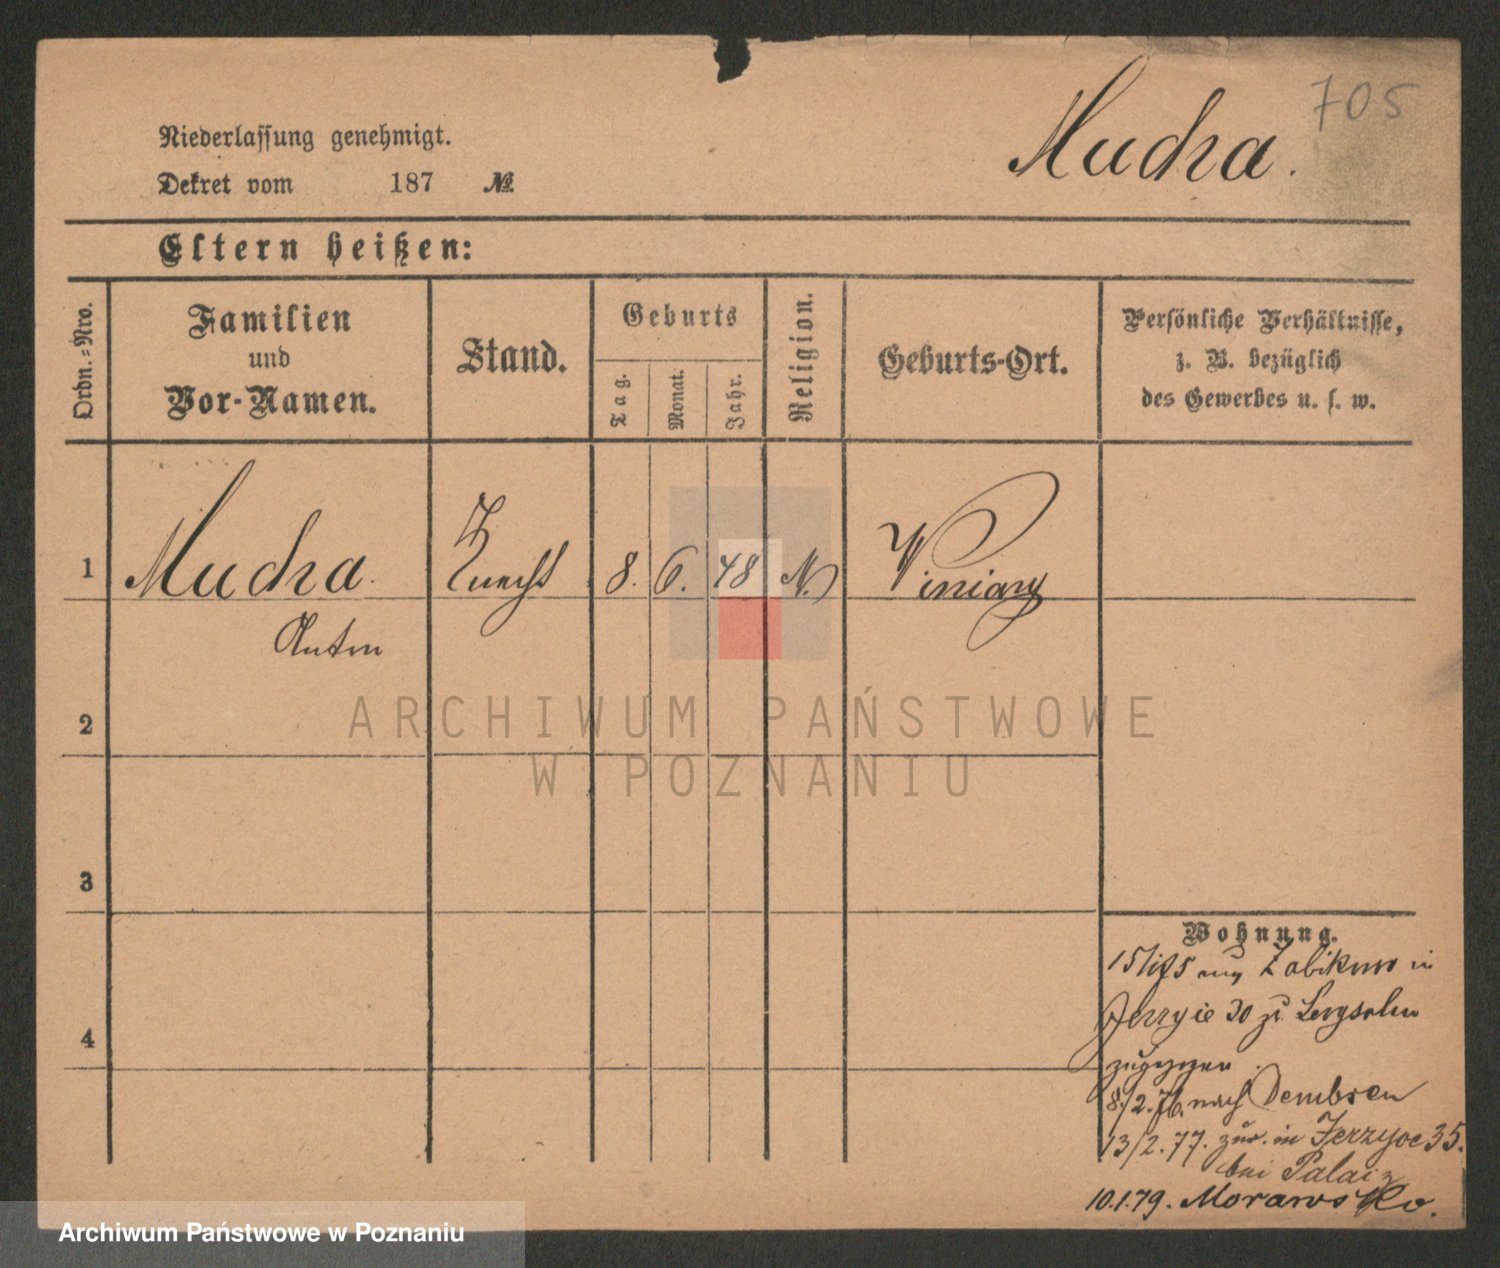 Mudra. 705
Niederlassung genehmigt.
Dekret vom 187 №
Eltern heißen:
Ordn.=Nro.
Familien
und
Vor-Namen.
Stand.
Geburts
Tag.
Monat.
Jahr.
Religion.
Geburts-Ort.
Persönliche Verhältnisse,
z. B. bezüglich
des Gewerbes u. s. w.
1 Mudra. Knecht 8. 6. 48 Winiary
Anton
2
3
4
Wohnung.
aus Zabikowo in
30 zu
zugezogen.
8/2.76. nach Dembsen
13/2.77. zur. in 35.
bei
10.1.79. Morawsko.
ARCHIWUM PAŃSTWOWE
W POZNANIU
Archiwum Państwowe w Poznaniu